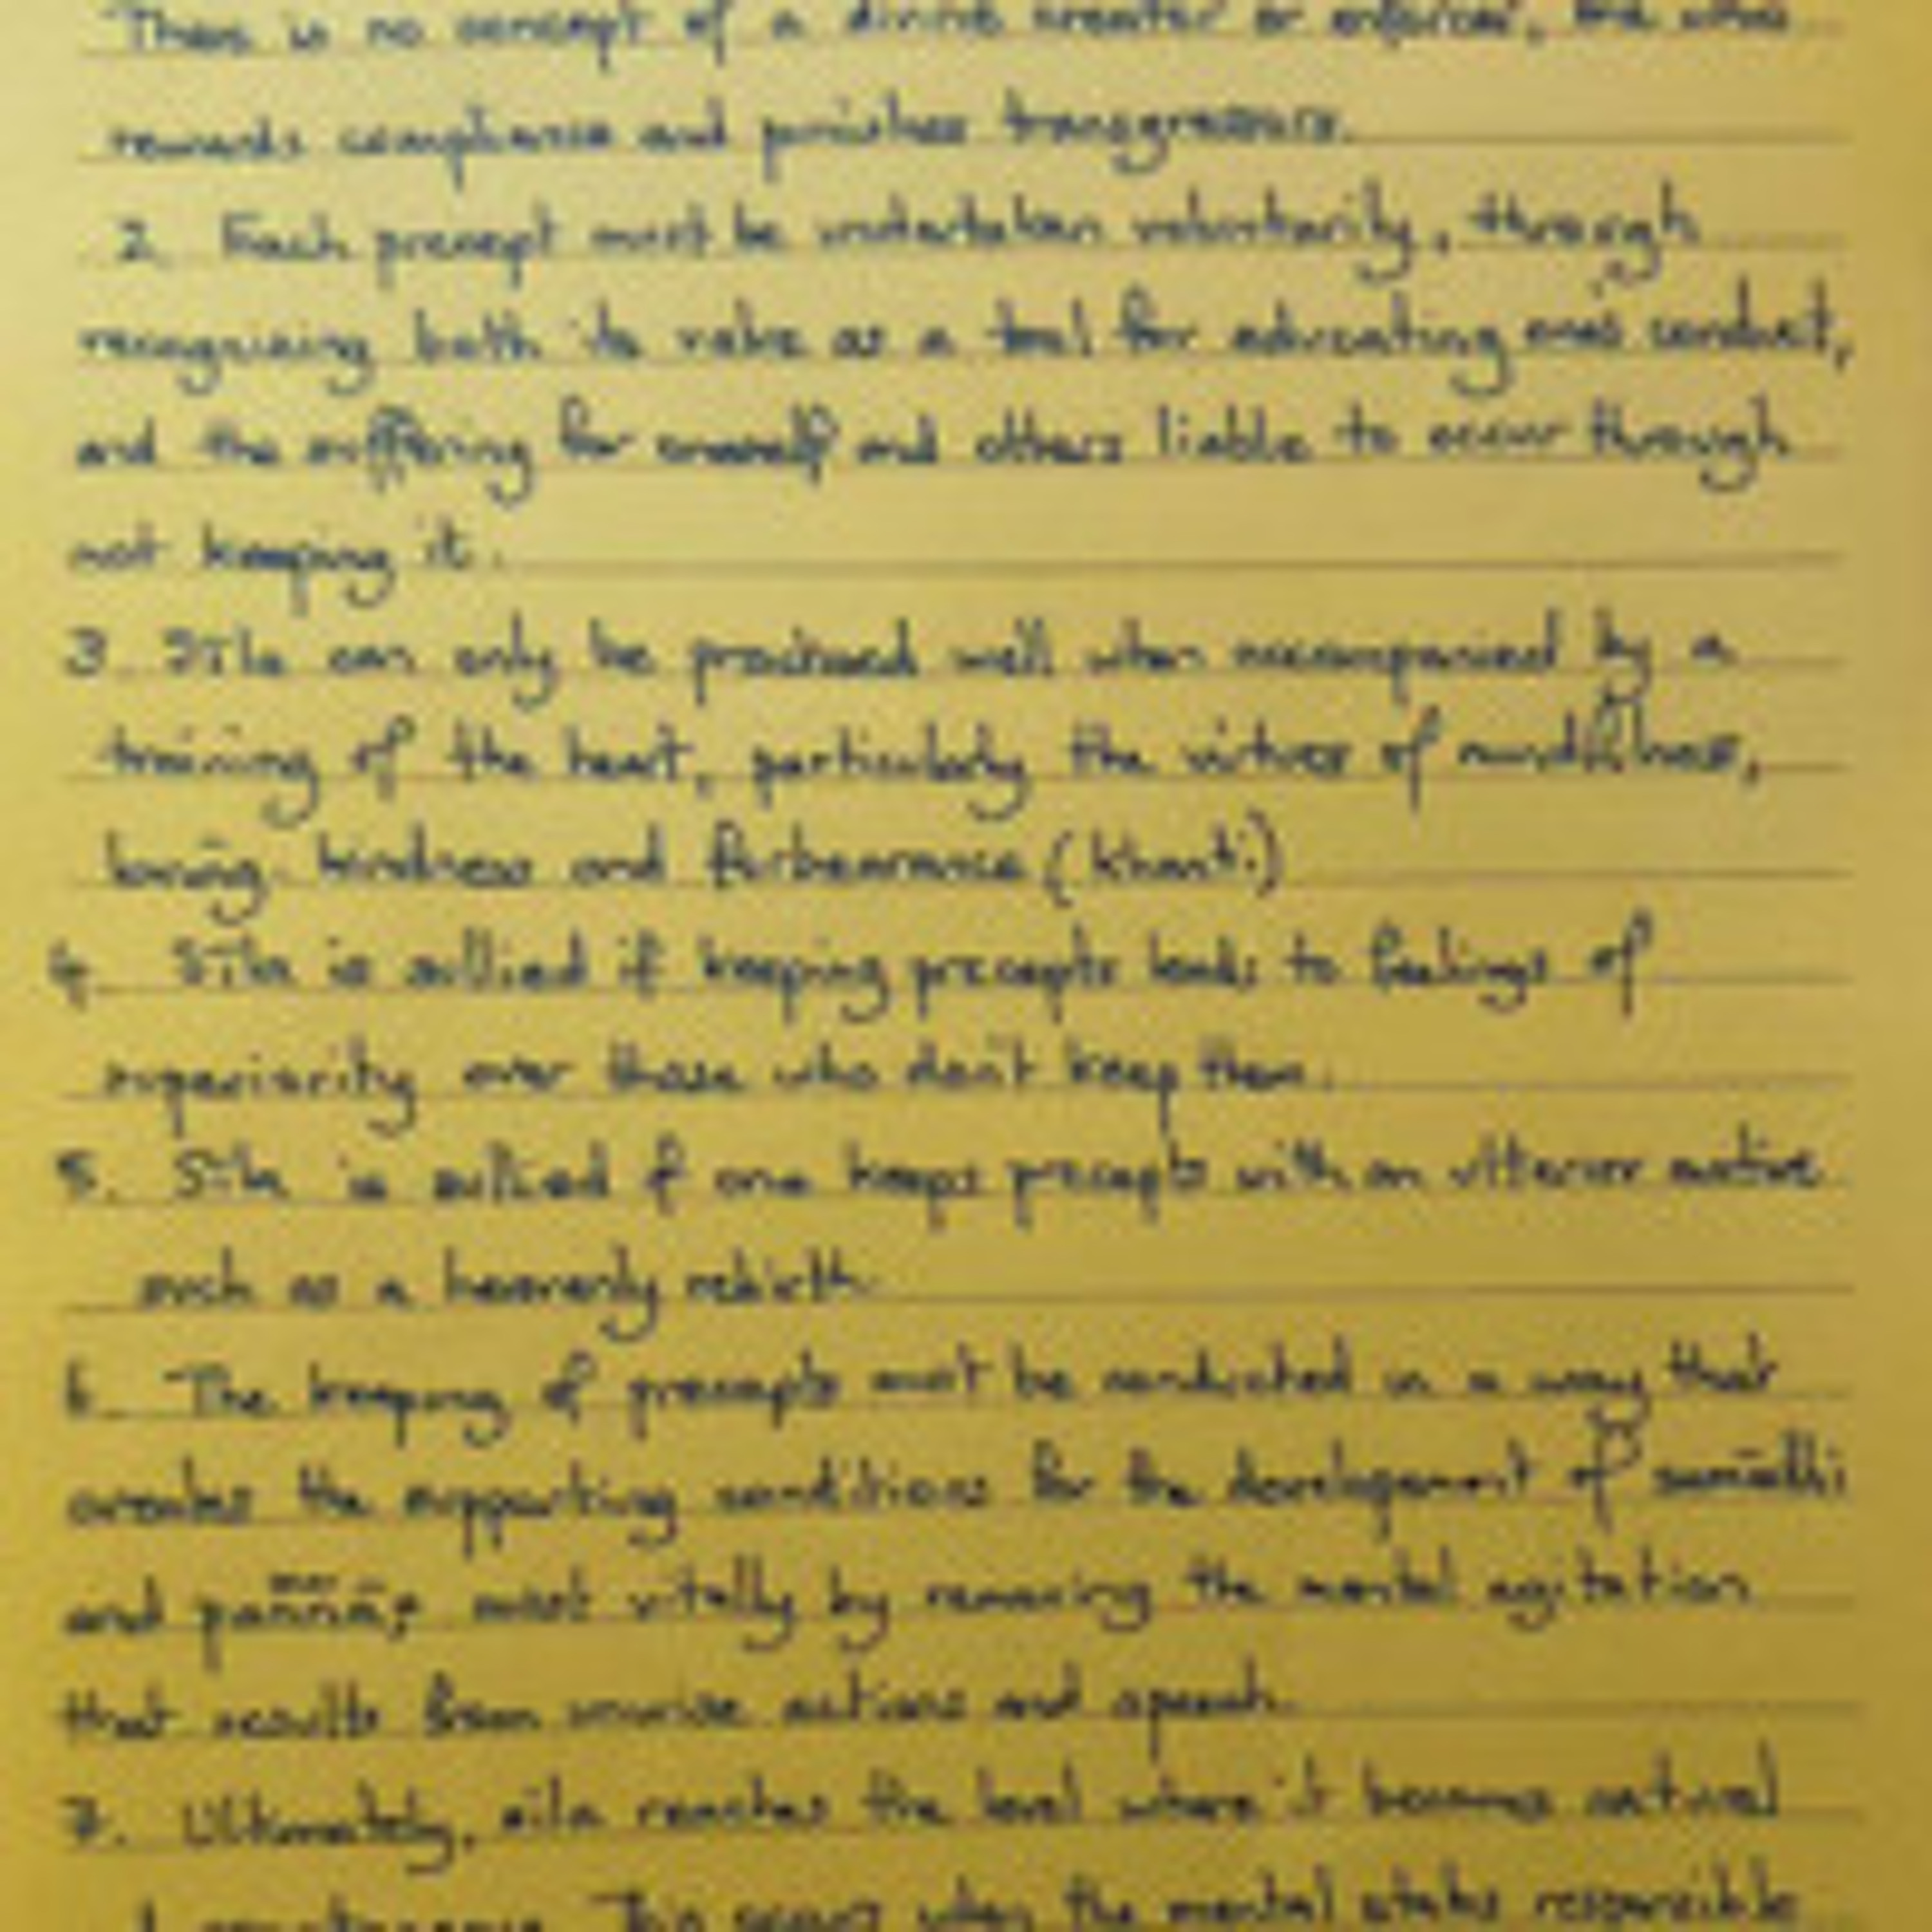 There is no concept of a divine creator or enforcer, one who
rewards compliance and punishes transgressors.
2. Each precept must be undertaken voluntarily, through
recognizing both its value as a tool for educating one's conduct,
and the suffering for oneself and others liable to occur through
not keeping it.
3. Sīla can only be practised well when accompanied by a
training of the heart, particularly the virtues of mindfulness,
loving-kindness and forbearance (khanti)
4. Sīla is sullied if keeping precepts leads to feelings of
superiority over those who don't keep them.
5. Sīla is sullied if one keeps precepts with an ulterior motive
such as a heavenly rebirth.
6. The keeping of precepts must be conducted in a way that
creates the supporting conditions for the development of samādhi
and paññā, most vitally by removing the mental agitation
that results from unwise actions and speech.
7. Ultimately, sīla reaches the level where it becomes natural
This occurs when the mental states responsible